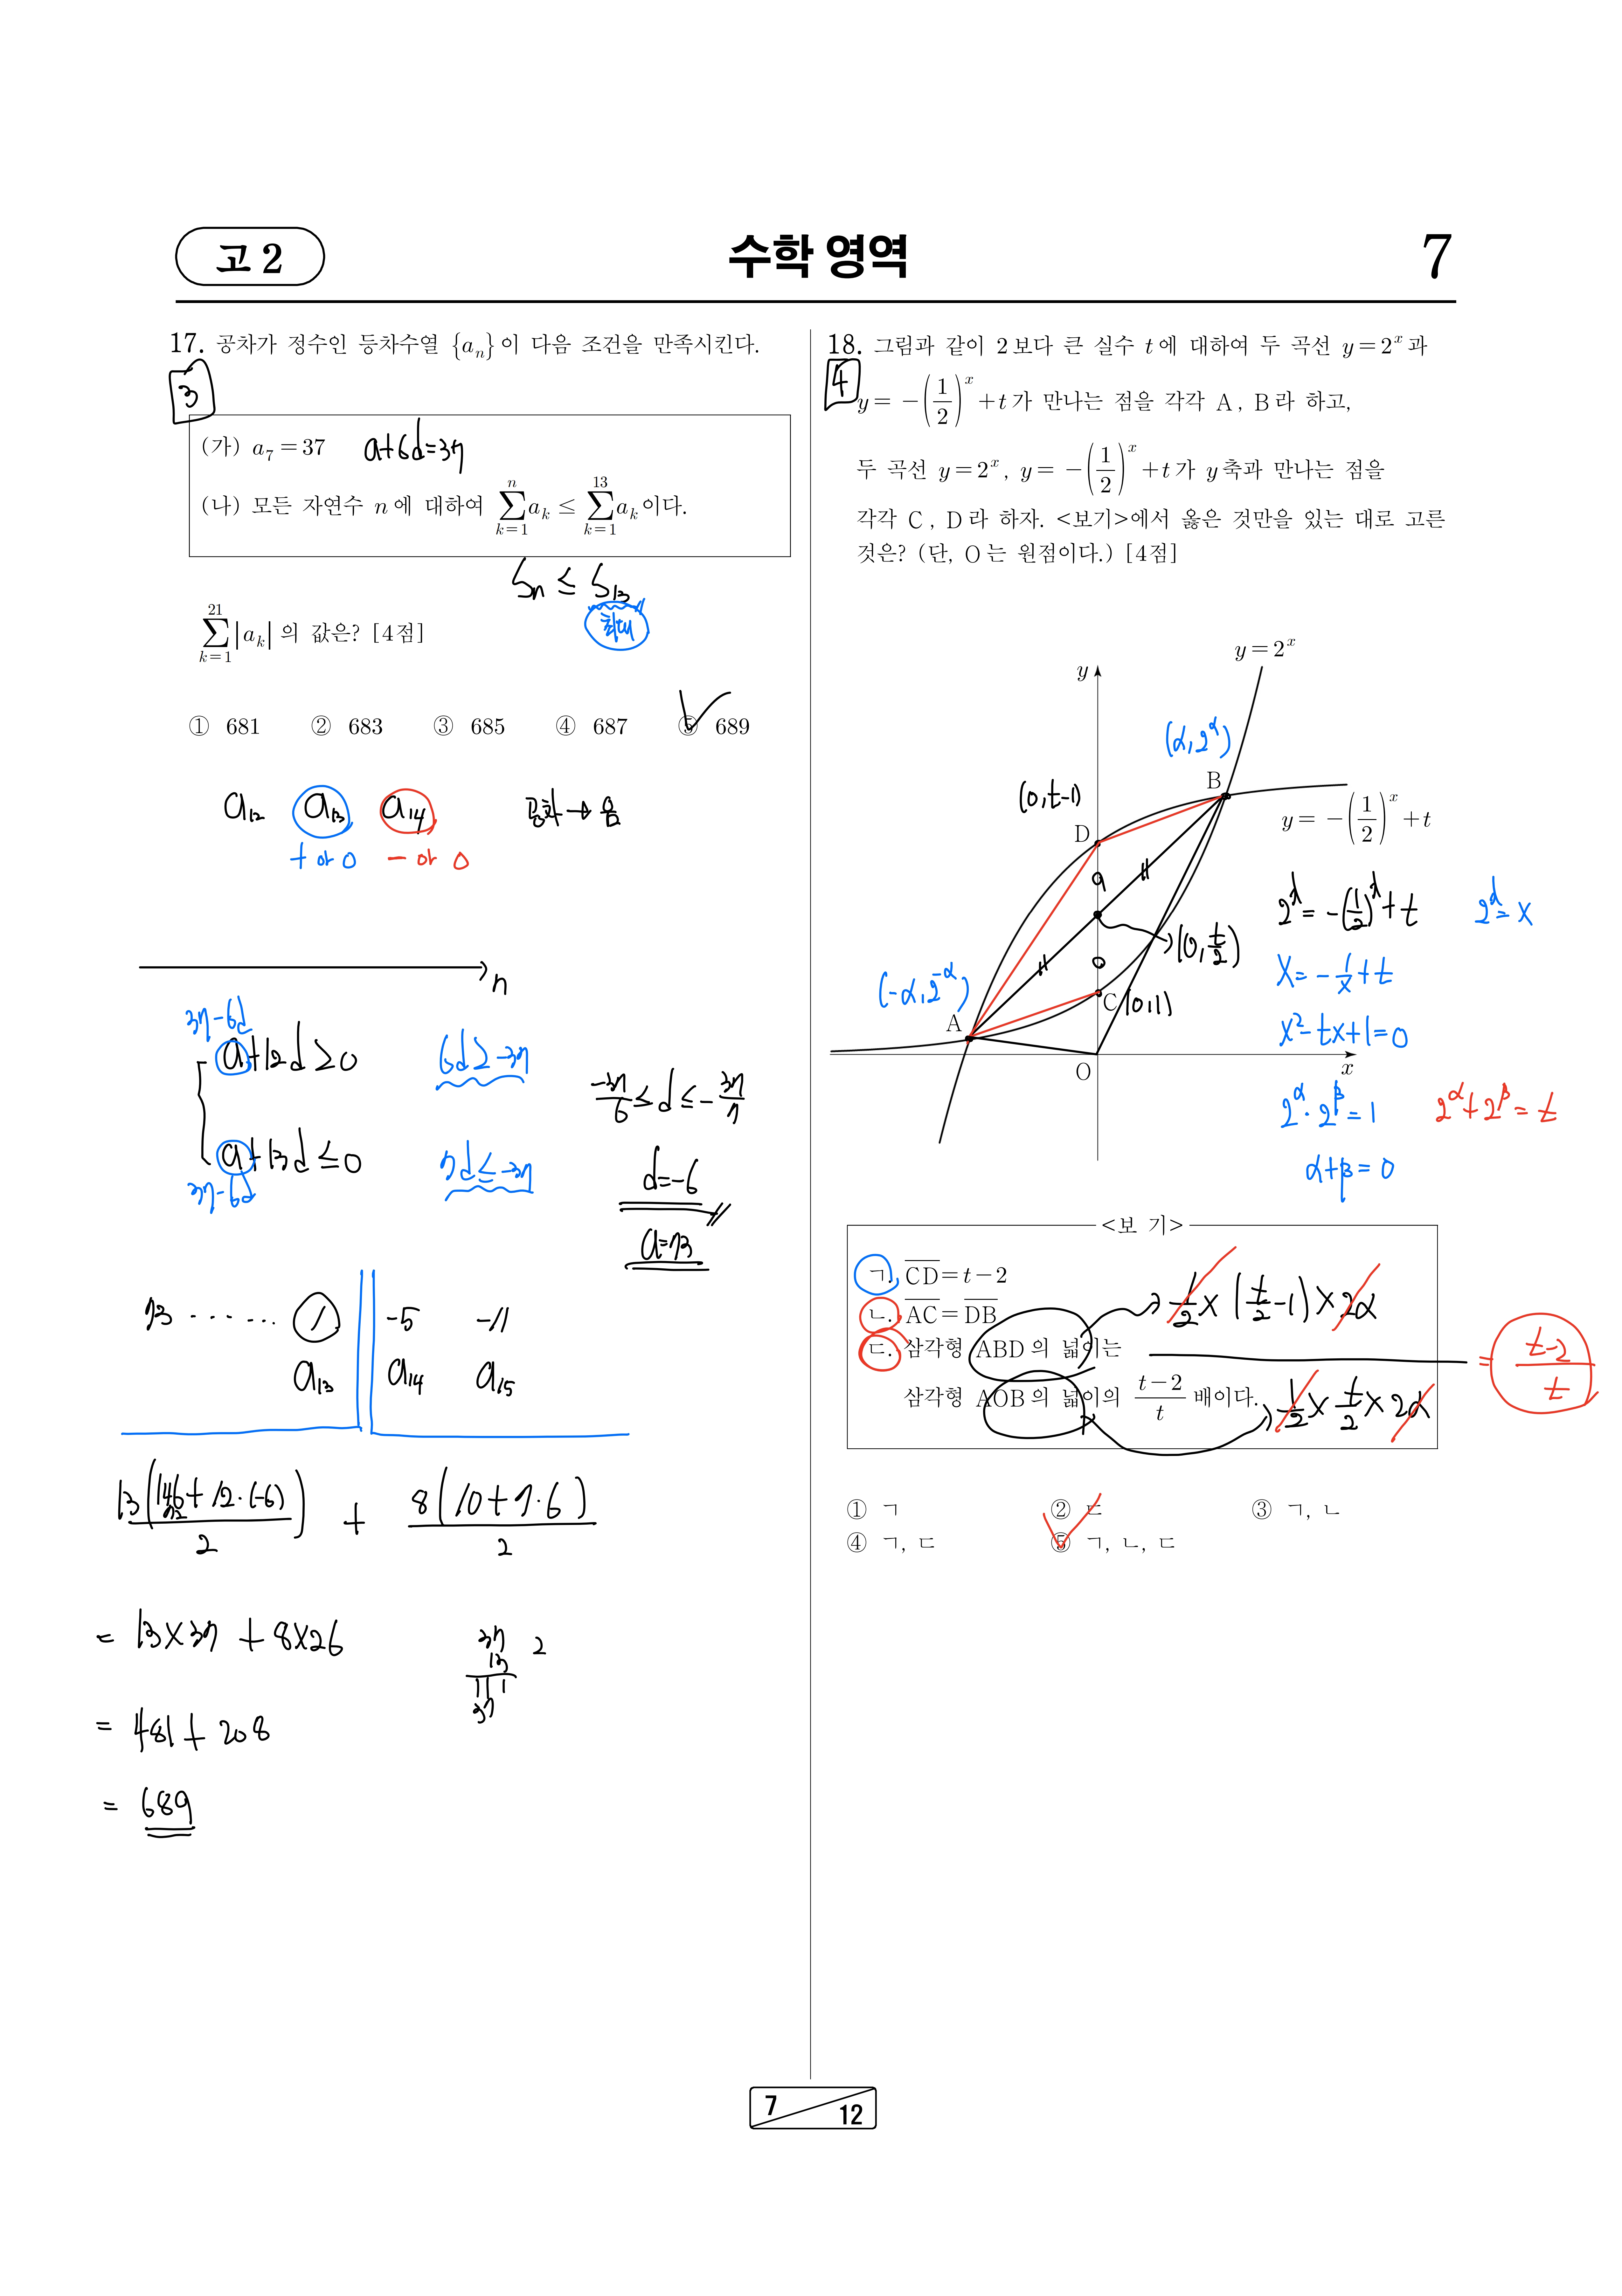 고 2
수학 영역
7
17. 공차가 정수인 등차수열 {aₙ}이 다음 조건을 만족시킨다.
3
(가) a₇ = 37
a+6d=37
(나) 모든 자연수 n에 대하여 ∑_{k=1}^{n} aₖ ≤ ∑_{k=1}^{13} aₖ이다.
Sₙ ≤ S₁₃
최대
∑_{k=1}^{21} |aₖ| 의 값은? [4점]
① 681 ② 683 ③ 685 ④ 687 ⑤ 689
a₁₂ a₁₃ a₁₄ 공차→음
+ or 0 - or 0
n
37-6d
a+12d≥0 6d≥-37
a+13d≤0 7d≤-37
37-6d
-37/6 ≤ d ≤ -37/7
d=-6
a=73
73 ······ 1 -5 -11
a₁₃ a₁₄ a₁₅
13(146+12·(-6))/2 + 8(10+7·6)/2
72
= 13×37 + 8×26
37 2
13
111
37
= 481+208
= 689
18. 그림과 같이 2보다 큰 실수 t에 대하여 두 곡선 y=2ˣ과
4
y = -(1/2)ˣ + t가 만나는 점을 각각 A, B라 하고,
두 곡선 y=2ˣ, y = -(1/2)ˣ + t가 y축과 만나는 점을
각각 C, D라 하자. <보기>에서 옳은 것만을 있는 대로 고른
것은? (단, O는 원점이다.) [4점]
y=2ˣ
y
(α, 2^α)
B
(0, t-1)
y = -(1/2)ˣ + t
D
2^α = -(1/2)^α + t 2^α = X
(0, t/2)
X = -1/X + t
(-α, 2^-α)
C (0,1)
A
X²-tX+1=0
O
x
2^α · 2^β = 1 2^α + 2^β = t
α+β=0
<보 기>
ㄱ. CD = t-2
ㄴ. AC = DB
1/2 × (t/2 - 1) × 2α
ㄷ. 삼각형 ABD의 넓이는
= (t-2)/t
삼각형 AOB의 넓이의 (t-2)/t 배이다.
1/2 × t/2 × 2α
① ㄱ ② ㄷ ③ ㄱ, ㄴ
④ ㄱ, ㄷ ⑤ ㄱ, ㄴ, ㄷ
7
12